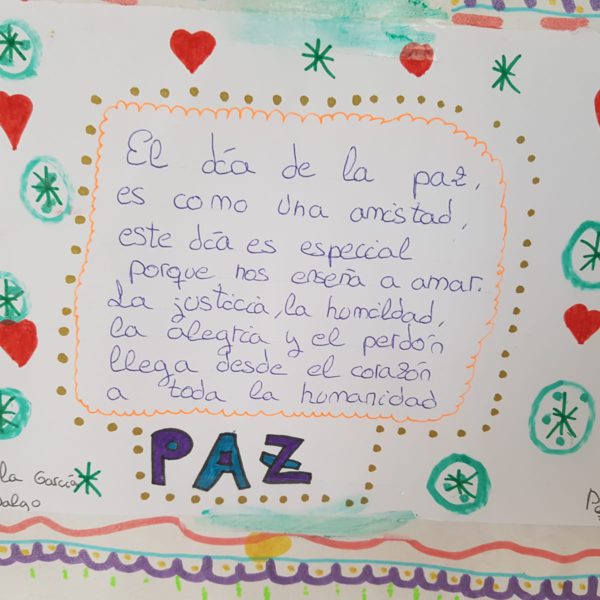 El día de la paz,
es como una amistad,
este día es especial
porque nos enseña a amar.
La justicia, la humildad,
la alegría y el perdón
llega desde el corazón
a toda la humanidad
PAZ
García